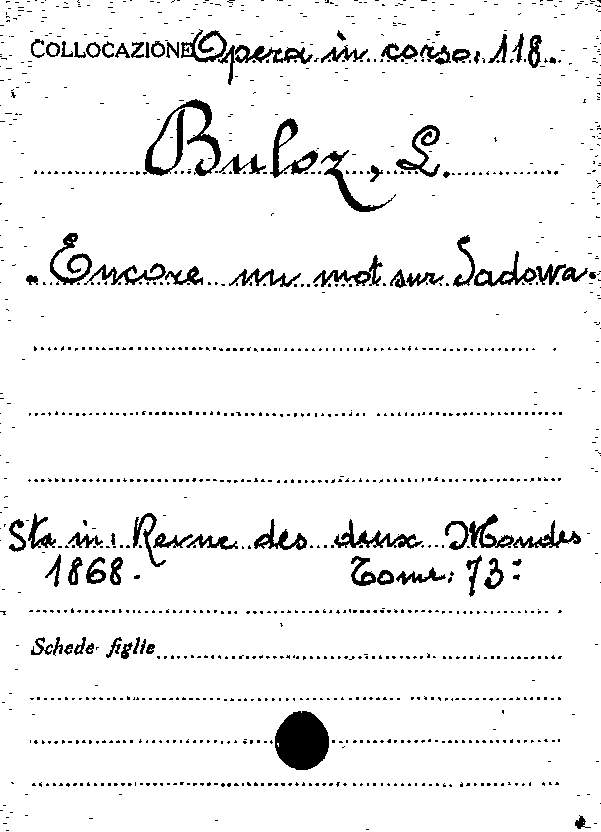 COLLOCAZIONE Opera in corso. 118.
Buloz, L.
. Encore un mot sur Sadowa.
Sta in: Revue des deux Mondes
1868. Tome: 73:
Schede figlie